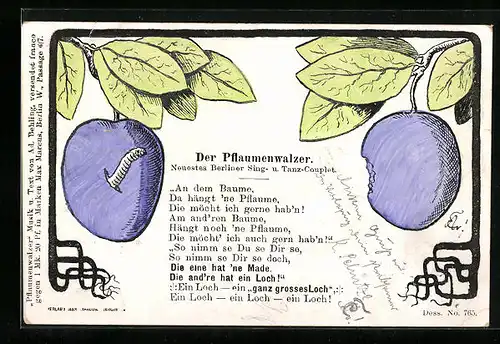 Der Pflaumenwalzer.
Neuestes Berliner Sing- u. Tanz-Couplet.
„An dem Baume,
Da hängt 'ne Pflaume,
Die möcht ich gerne hab'n!
Am and'ren Baume,
Hängt noch 'ne Pflaume,
Die möcht' ich auch gern hab'n!"
„So nimm se Du se Dir se,
So nimm se Dir se doch,
Die eine hat 'ne Made.
Die and're hat ein Loch!"
:,:Ein Loch — ein „ganz grosses Loch",:,:
Ein Loch — ein Loch — ein Loch!
„Pflaumenwalzer" Musik u. Text von Ad. Behling, versendet franco
gegen 1 Mk. 20 Pf. in Marken Max Marcus, Berlin W., Passage 6/7.
Dess. No. 765.